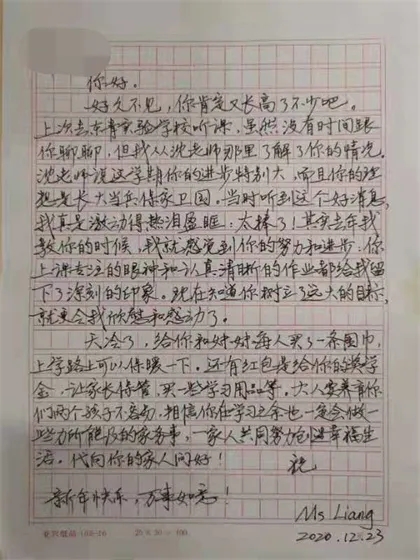 你好，
好久不见，你肯定又长高了不少吧。
上次去东青实验学校听课，虽然没有时间跟
你聊聊，但我从沈老师那里了解了你的情况。
沈老师说这学期你的进步特别大，而且你的理
想是长大当兵保家卫国。当时听到这个好消息，
我真是激动得热泪盈眶：太棒了！其实去年我
教你的时候，我就感觉到你的努力和进步：你
上课专注的眼神和认真清晰的作业都给我留
下了深刻的印象。现在知道你树立了远大的目标，
就更令我欣慰和感动了。
天冷了，给你和妹妹每人买了一条围巾，
上学路上可以保暖一下。还有红包是给你的奖学
金，让家长保管，买一些学习用品等。大人要养育你
们两个孩子不容易，相信你在学习之余也一定会做一
些力所能及的家务事，一家人共同努力创造幸福生
活。代向你的家人问好！ 祝
新年快乐，万事如意！
Ms Liang
2020.12.23
20×20=400